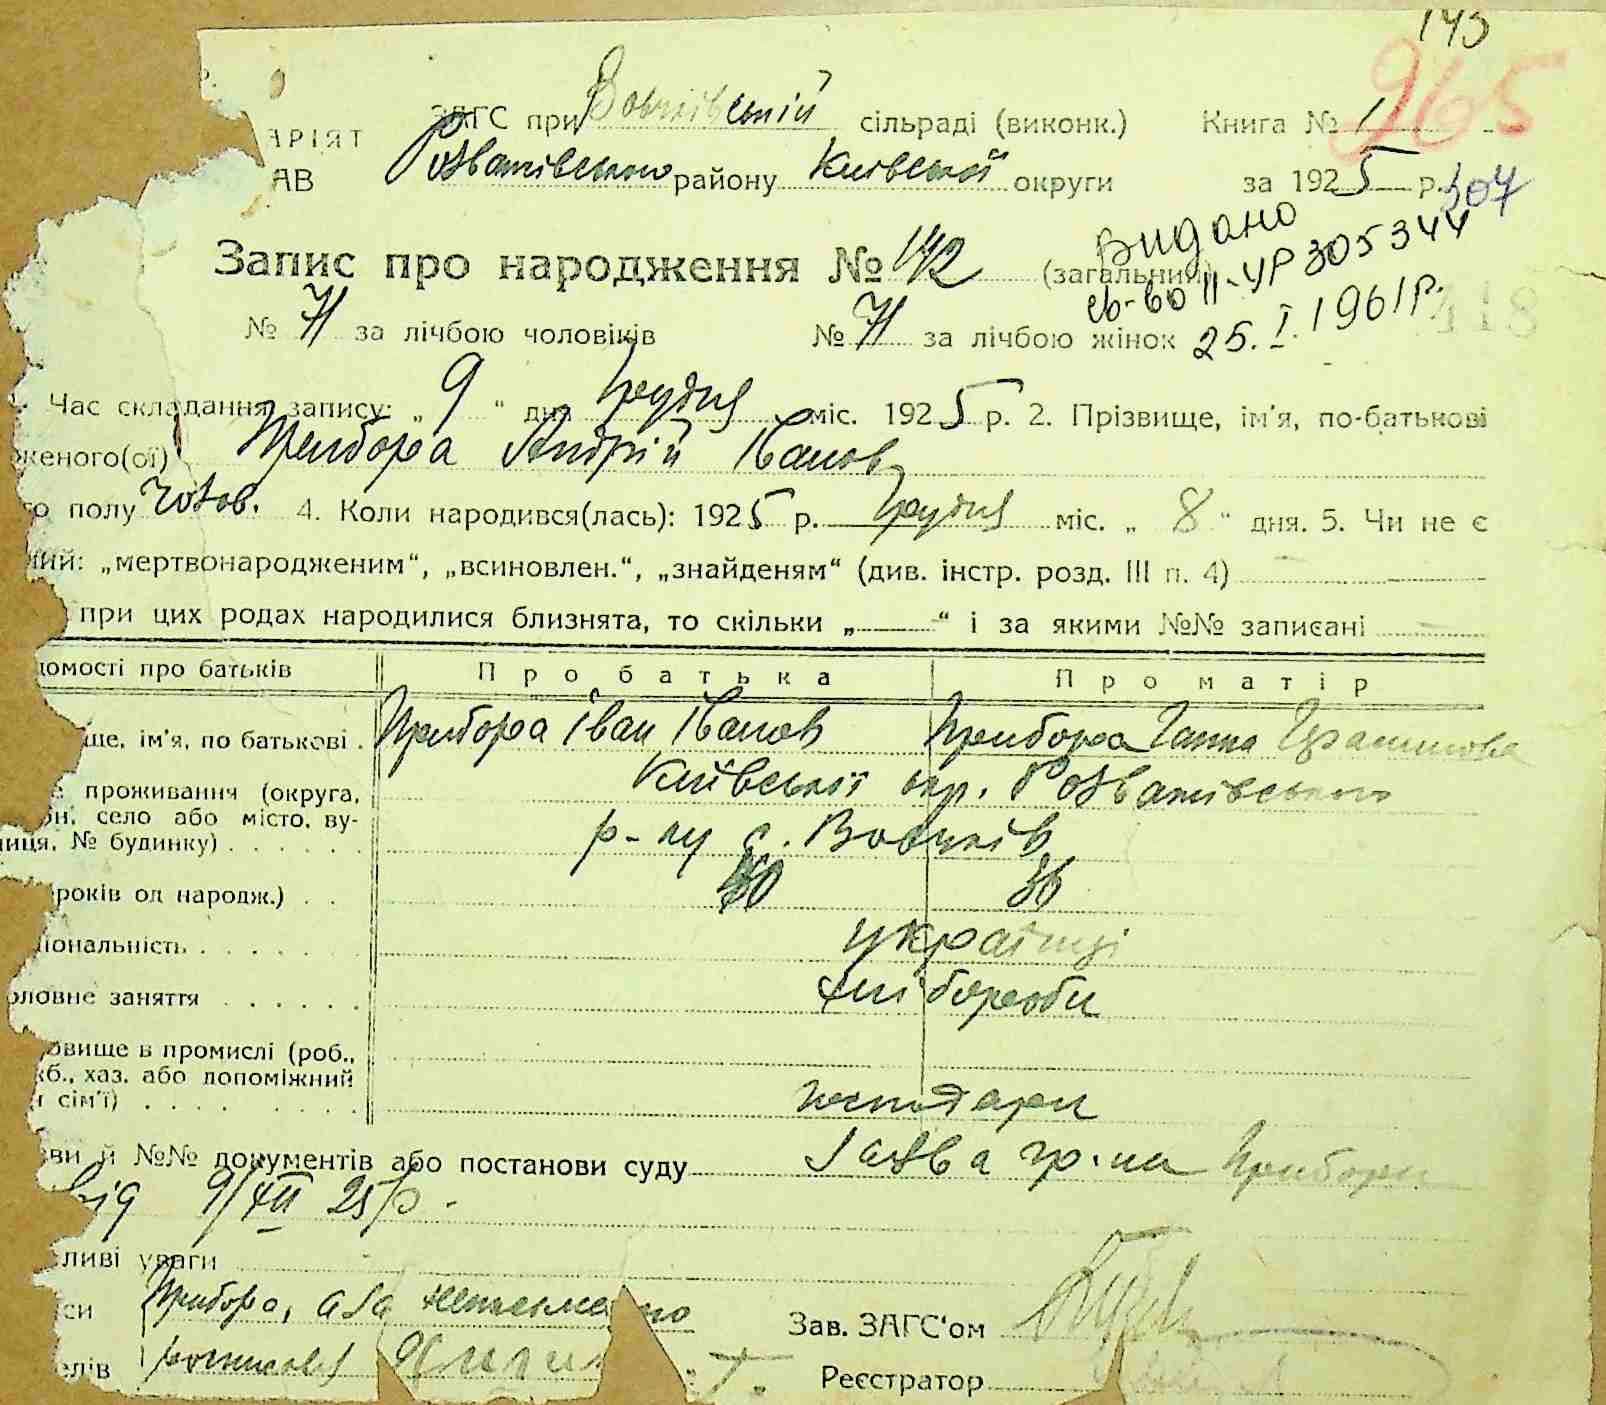 143
265
АРІЯТ ЗАГС при Вовчківській сільраді (виконк.) Книга № 1
АВ Розважівського району Київської округи за 1925 р. 307
Запис про народження № 142 (загальний)
Видано
св-во II-УР 305344
25.I.1961р.
118
№ 71 за лічбою чоловіків № 71 за лічбою жінок
Час складання запису: „ 9 “ дня Грудня міс. 1925 р. 2. Прізвище, ім'я, по-батькові
женого(ої) Прибора Андрій Іванов
го полу чолов. 4. Коли народився(лась): 1925 р. Грудня міс. „ 8 “ дня. 5. Чи не є
ний: „мертвонародженим“, „всиновлен.“, „знайденям“ (див. інстр. розд. III п. 4)
при цих родах народилися близнята, то скільки „ “ і за якими №№ записані
домості про батьків Про батька Про матір
ще, ім'я, по батькові Прибора Іван Іванов Прибора Ганна Герасимова
е проживання (округа, Київської окр. Розважівського
он, село або місто, ву-
лиця, № будинку) р-ну с. Вовчків
років од народж.) 40 36
ціональність українці
оловне заняття хлібороби
овище в промислі (роб.,
жб., хаз. або допоміжний
н сім'ї) господари
зви й №№ документів або постанови суду Заява гр-на Прибори
від 9/XII 25 р.
ливі уваги
си Прибора, а за неписьмен но
Зав. ЗАГС'ом
елів
Реєстратор